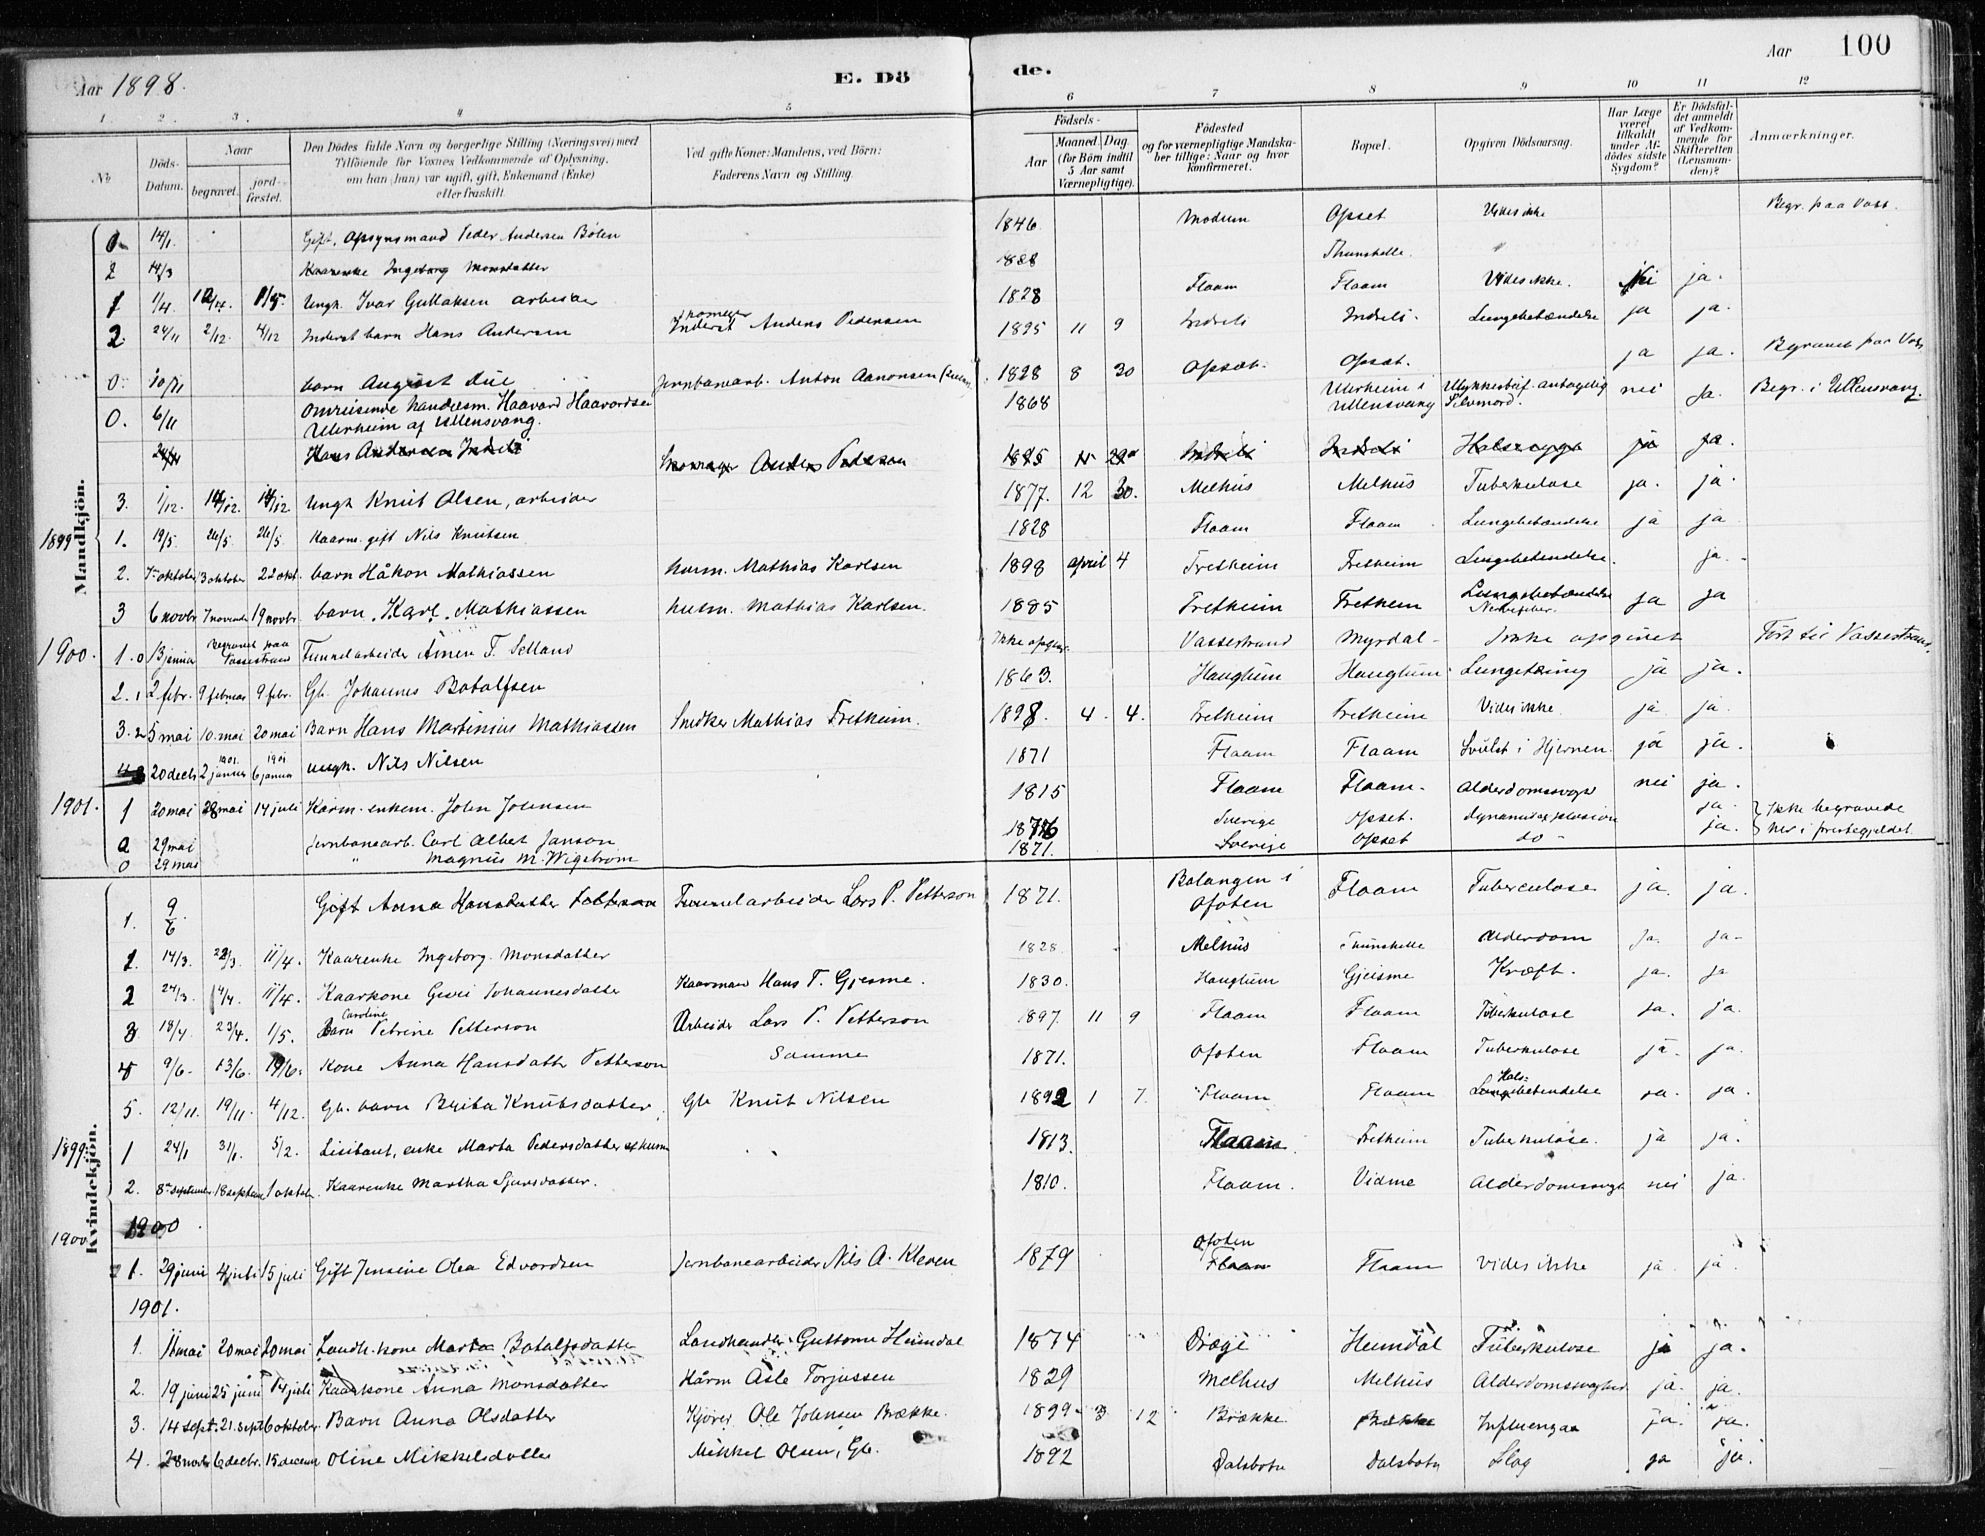 Aar 1898.
E. Dö
de.
Aar 100
1. 2. 3. 4 5 6 7 8 9 10 11 12
No
Döds-Datum.
Naar
begravet.
jord-fæstet.
Den Dödes fulde Navn og borgerlige Stilling (Næringsvei) med
Tilföiende for Voxnes Vedkommende af Oplysning,
om han (hun) var ugift, gift, Enkemand (Enke)
eller fraskilt.
Ved gifte Koner: Mandens, ved Börn:
Faderens Navn og Stilling.
Födsels-
Aar
Maaned. Dag.
(for Börn indtil 5 Aar samt Værnepligtige).
Födested
og for værnepligtige Mandska-
ber tillige: Naar og hvor
konfirmeret.
Bopæl.
Opgiven Dödsaarsag.
Har Læge været tilkaldt under Af-dödes sidste Sygdom?
Er Dödsfal-det anmeldt af Vedkom-mende for Skifteretten (Lensman-den)?
Anmærkninger.
Mandkjön.
0 14/1 Gift, Opsynsmand Peder Andersen Bölen 1846 Modum Opset Vides ikke Begr. paa Voss.
2 14/3 Kaarenke Ingeborg Monsdatter 1828 Thunshelle
1 1/4 12/4 1/5 Ungk. Ivar Gullaksen arbeider 1828 Flaam Flaam Vides ikke. nei ja.
2. 24/11 2/12 4/12 Inderst barn Hans Andersen Skomager Inderst Anders Pedersen 1895 11 9 Indreli Indreli. Lungebetændelse ja ja.
0 10/11 barn August Due Jernbanearb. Anton Aanonsen 1828 8 30 Opset. Opset. ja ja. Begravet paa Voss
0. 6/11 Omreisende handelsm. Haavard Haavardsen
Utterheim af Ullensvang. 1868 Utterheim i Ullensvang Ulykkesteif. antagelig Selvmord. nei ja. Begr. i Ullensvang.
24/11 Hans Andersen Indreli Skomager Anders Pedersen 1895 11 29 Indreli Indreli Halssyge ja ja.
3. 1/12. 14/12. 14/12 Ungk Knut Olsen, arbeider 1877. 12 30. Melhus Melhus Tuberkulose ja. ja.
1899 1. 19/5 26/5. 26/5 Kaarm. gift Nils Knutsen 1828 Flaam Flaam Lungebetændelse ja ja.
2. 7 oktober 13 oktober 22 okt. barn Håkon Mathiassen husm. Mathias Karlsen 1898 april 4 Fretheim Fretheim Lungebetendelse. ja.
3 6 novbr 7 november 19 novbr. barn, Karl, Mathiassen husm. Mathias Karlsen. 1885 Fretheim Fretheim Lungebetændelse Nervefeber. ja ja
1900. 1. 0 13 januar Begravet paa Vassestrand Tunnelarbeider Amen T. Selland Ikke opgivet. Vassestrand Myrdal Ikke opgivet Ført til Vassestrand.
2. 1 2 febr. 9 februar 9 febr. Gb. Johannes Botolfsen 1863. Hauglum Hauglum Lungetæring ja ja.
3. 2 5 mai 10. mai 20 mai Barn Hans Martinius Mathiassen Snedker Mathias Fretheim. 1898. 4. 4. Fretheim Fretheim Vides ikke ja ja.
20 decb 2 januar 1901 6 januar 1901 Ungk. Nils Nilsen 1871 Flaam Flaam Svulst i Hjernen ja ja.
1901. 1 20 mai 28 mai 14 juli Kaarm. enkem. John Johnsen 1815 Flaam Flaam. Alderdomssvagh nei ja.
0 29 mai Jernbanearb. Carl Albert Janson 1876 Sverige Opset. dynamitexplosion ja. Ikke begravede
0 29 mai " Magnus M. Wigstrøm 1871. Sverige Opset do ja. her i prestegjeldet.
Kvindekjön.
1. 9/6 Gift Anna Hansdatter Petterson Tunnelarbeider Lars P. Petterson 1871. Balangen i Ofoten Flaam Tuberculose ja. ja.
1. 14/3. 22/3. 11/4. Kaarenke Ingeborg Monsdatter 1828. Melhus Thunshelle Alderdom ja. ja.
2 24/3. 4/4. 11/4. Kaarkone Gurei Johannesdatter Kaarmand Hans T. Gjesme. 1830. Hauglum Gjeisme Kræft. ja. ja
3 18/4 23/4. 1/5. Barn Caroline Petrine Petterson Arbeider Lars P. Petterson 1897. 11 9 Flaam Flaam Tuberkulose ja. ja.
4 9/6. 13/6. 19/6. Kone Anna Hansdatter Petterson Samme 1871. Ofoten Flaam Tuberkulose ja. ja.
5. 12/11. 19/11. 4/12. Gb. barn Brita Knutsdatter, Gb Knut Nilsen 1892 1 7. Flaam Flaam Hals- Lungebetendelse ja. ja.
1899. 1 24/1 31/1. 5/2. Marta Pedersdatter 1813. Flaam. Fretheim Tuberkulose. ja ja.
2. 8 september 18 septem 1 oktober. Kaarenke Martha Sjursdatter. 1810. Flaam. Vidme Alderdomssvagh nei ja.
1900
1900 1. 29 juni 4 juli 15 juli Gift Jensine Olea Edvardsen Jernbanearbeider Nils A. Kleven 1879 Ofoten Flaam Flaam vides ikke ja ja.
1901.
1. 11 mai 20 mai 20 mai Landh. kone Marta Botolfsdatter Landhandler Guttorm Heimdal 1874 Drægi Heimdal Tuberkulose ja ja.
2. 19 juni 25 juni 14 juli Kaarkone Anna Monsdatter Kårm Asle Torjussen 1829 Melhus Melhus Alderdomssvaghed ja. ja.
3. 14 sept. 21. sept 6 oktober Barn Anna Olsdatter Kjører Ole Johnsen Brække. 1899 3 12 Brække Brække Influenza ja. ja.
4. 28 novbr 6 decbr. 15 decem Oline Mikkelsdatter Mikkel Olsen, Gb. 1892 Dalsbotn Dalsbotn Slag ja ja.